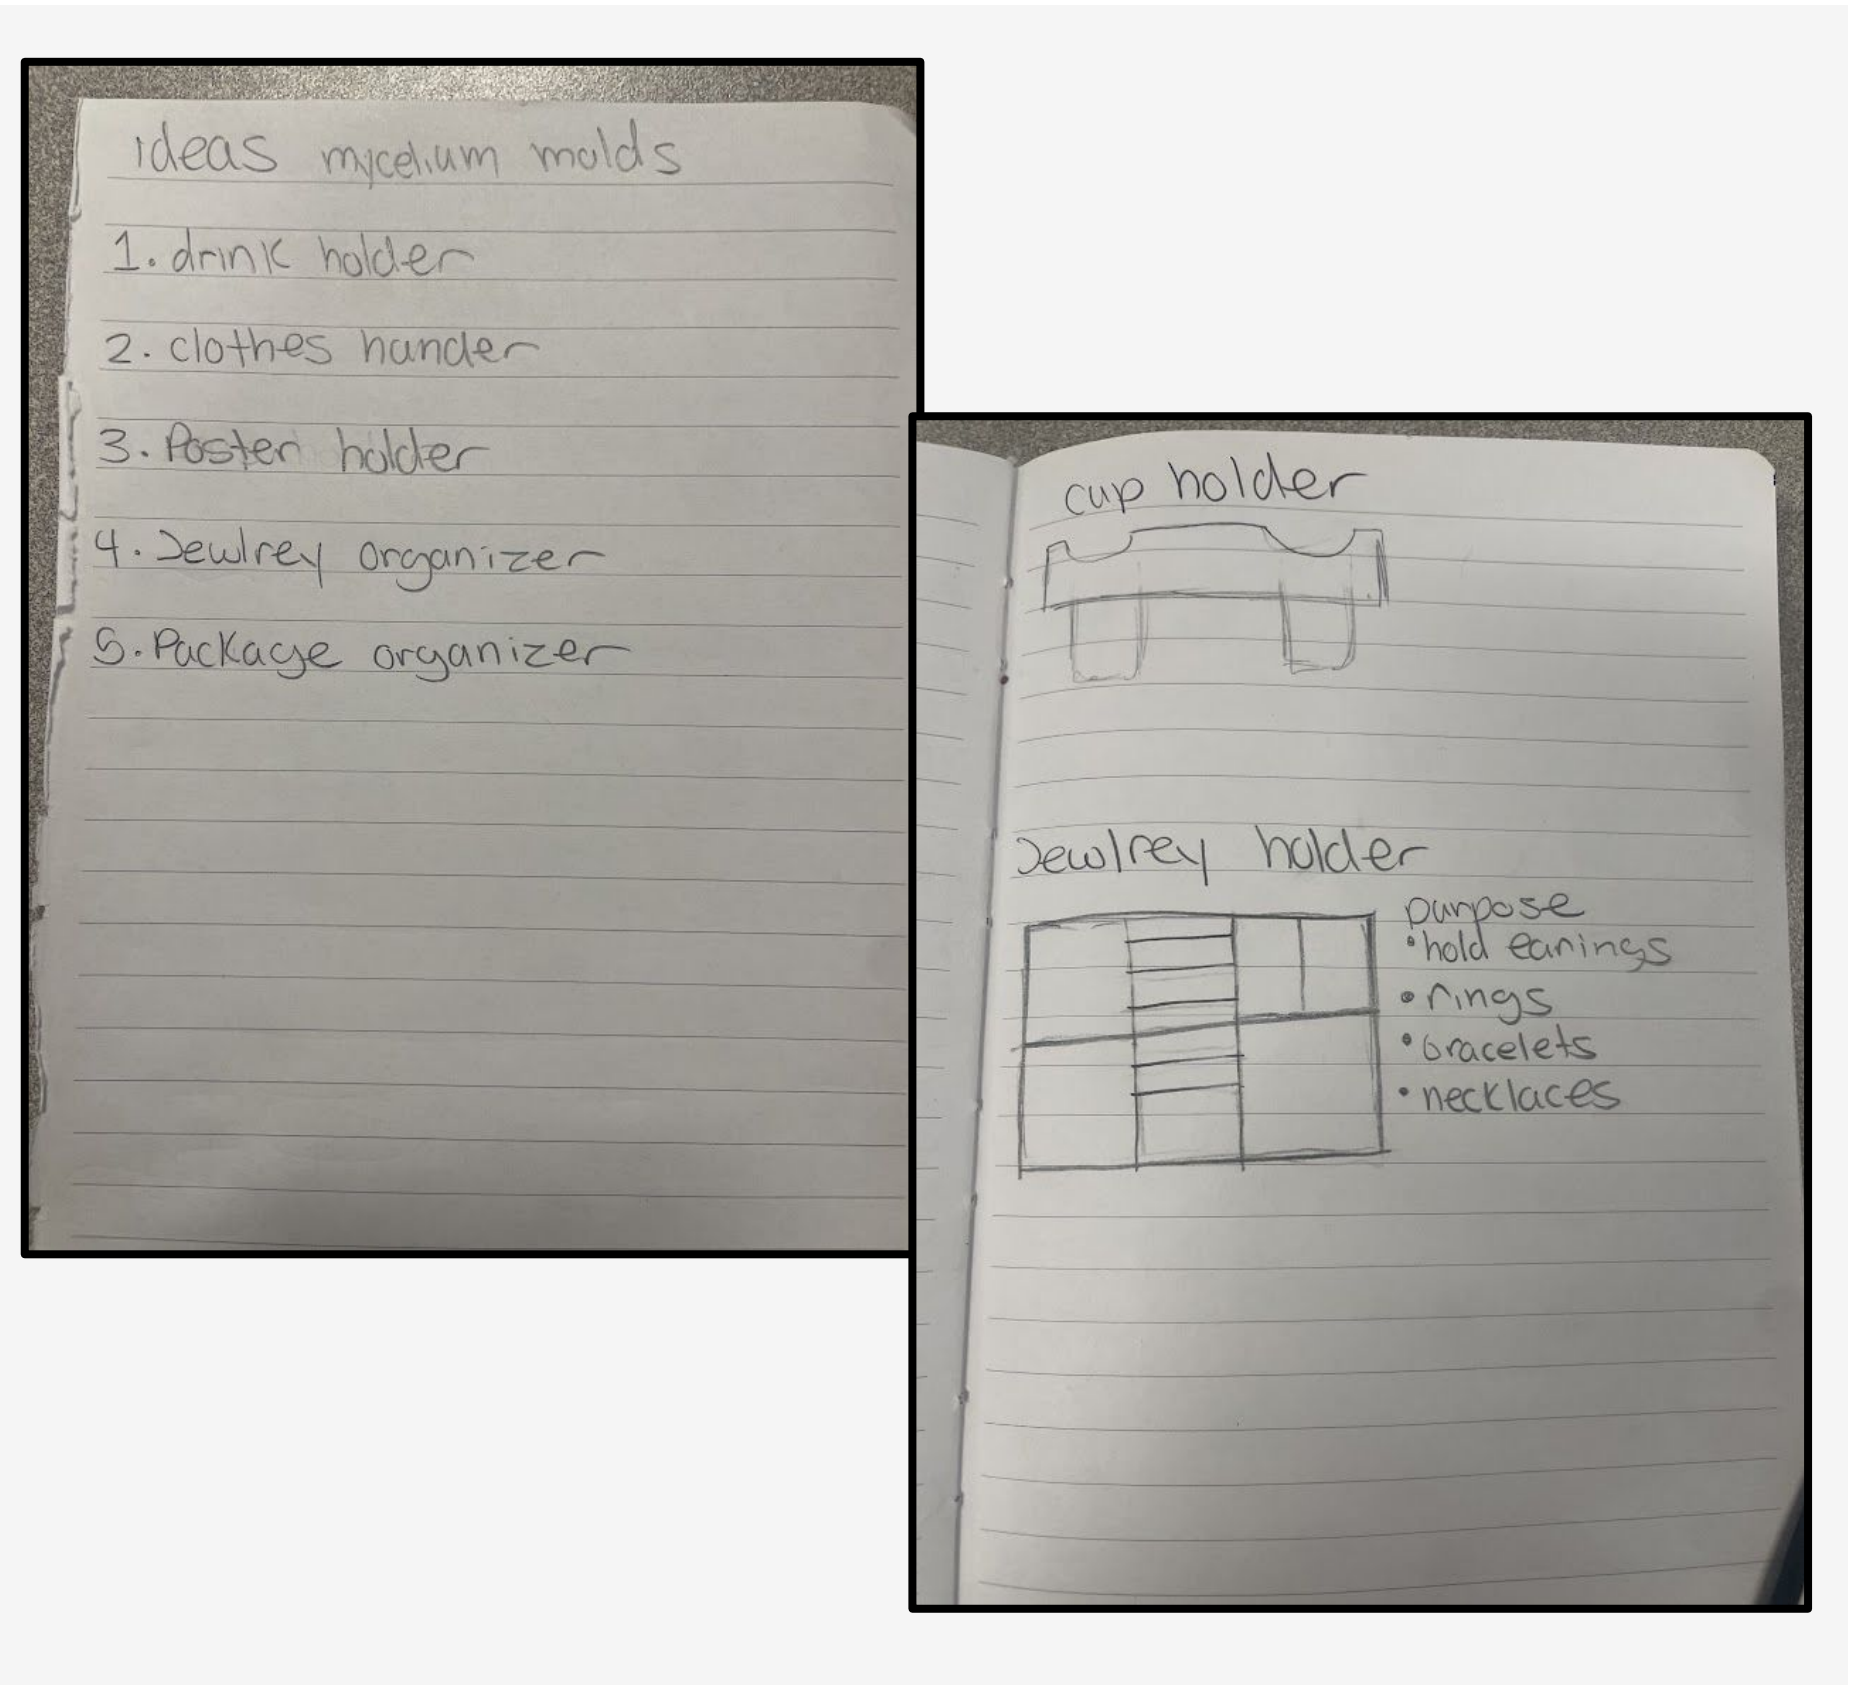 ideas mycelium molds
1. drink holder
2. clothes hander
3. Poster holder
4. Jewlrey organizer
5. Package organizer
cup holder
Jewlrey holder
purpose
• hold earings
• rings
• bracelets
• necklaces